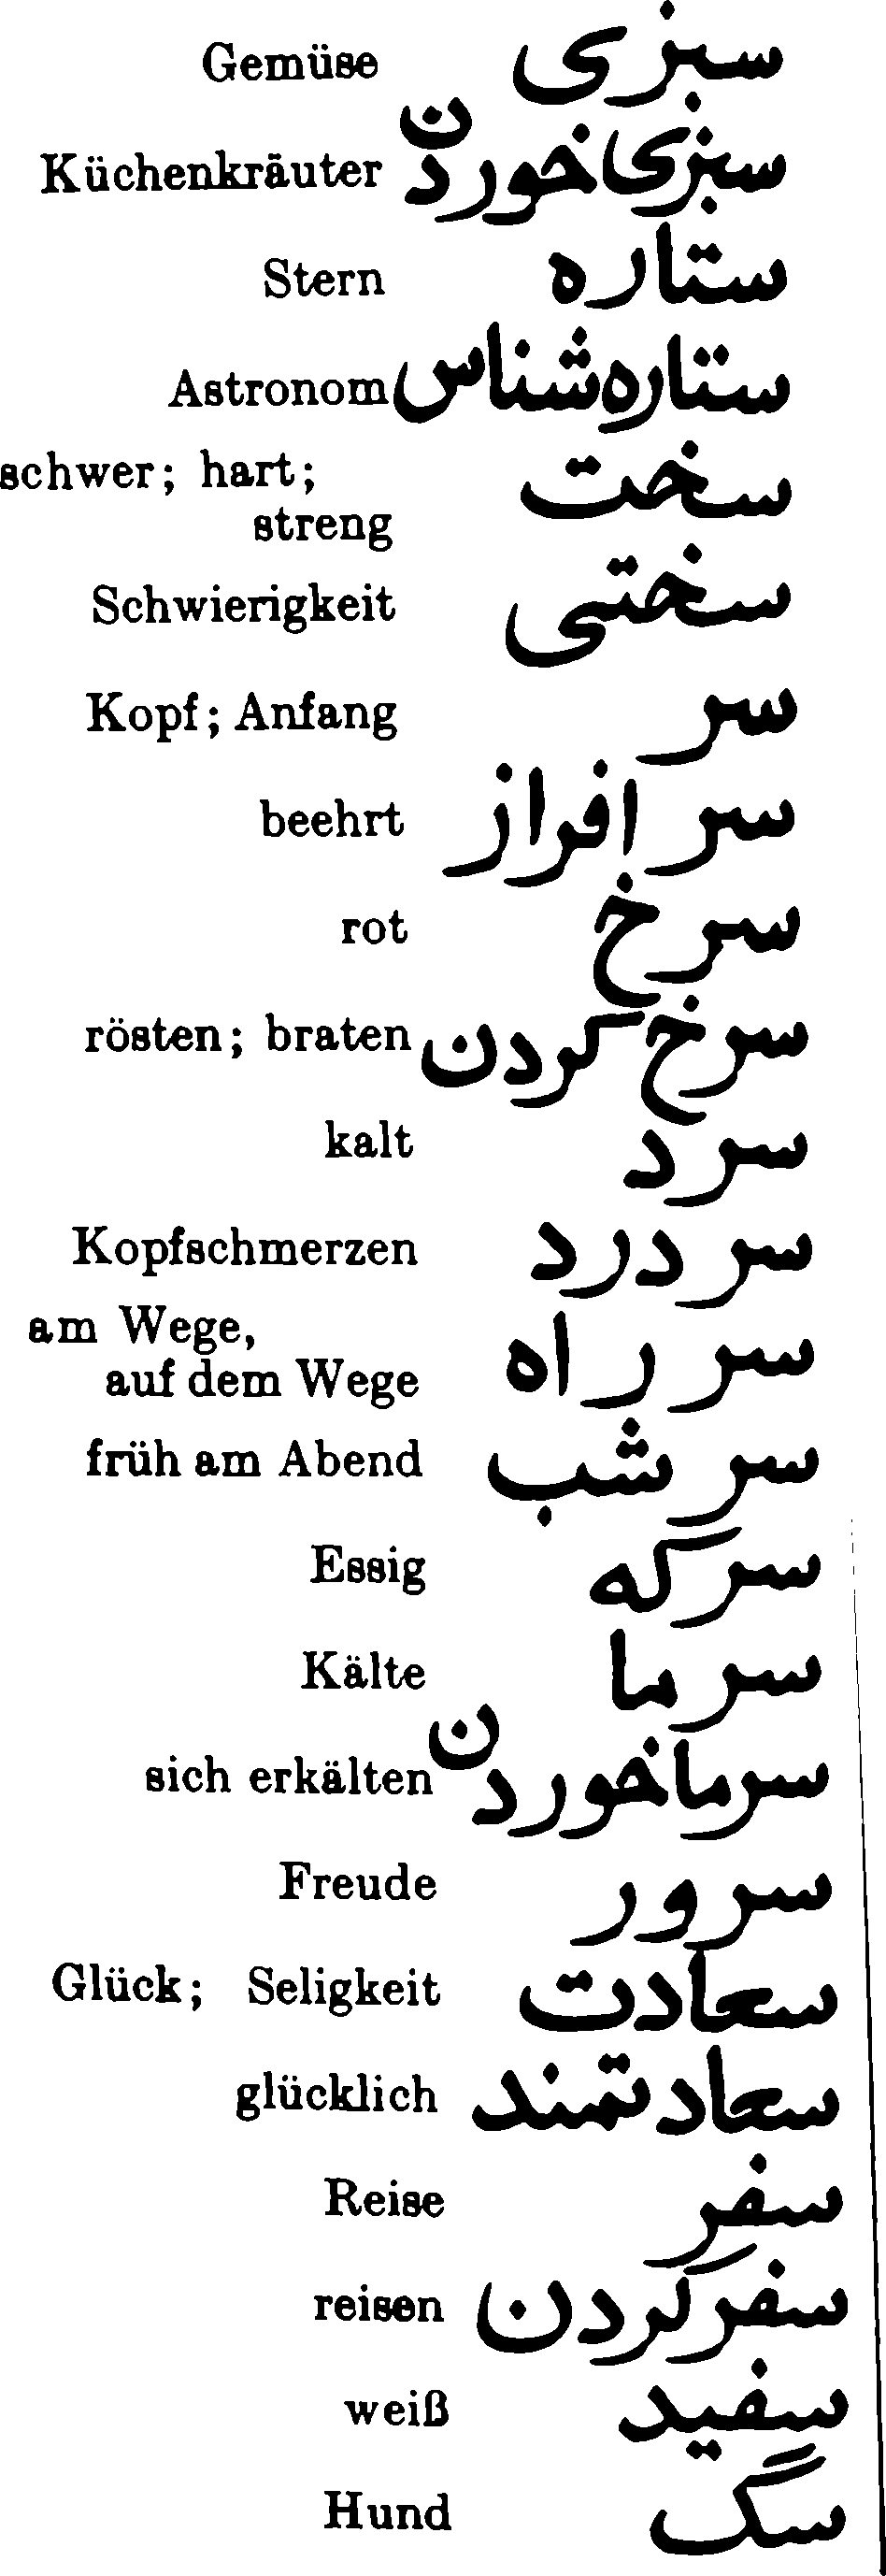 Gemüse سبزی
Küchenkräuter سبزی خوردن
Stern ستاره
Astronom ستاره‌شناس
schwer; hart;
streng سخت
Schwierigkeit سختی
Kopf; Anfang سر
beehrt سر افراز
rot سرخ
rösten; braten سرخ کردن
kalt سرد
Kopfschmerzen سر درد
am Wege,
auf dem Wege سر راه
früh am Abend سر شب
Essig سرکه
Kälte سرما
sich erkälten سرما خوردن
Freude سرور
Glück; Seligkeit سعادت
glücklich سعادتمند
Reise سفر
reisen سفر کردن
weiß سفید
Hund سگ